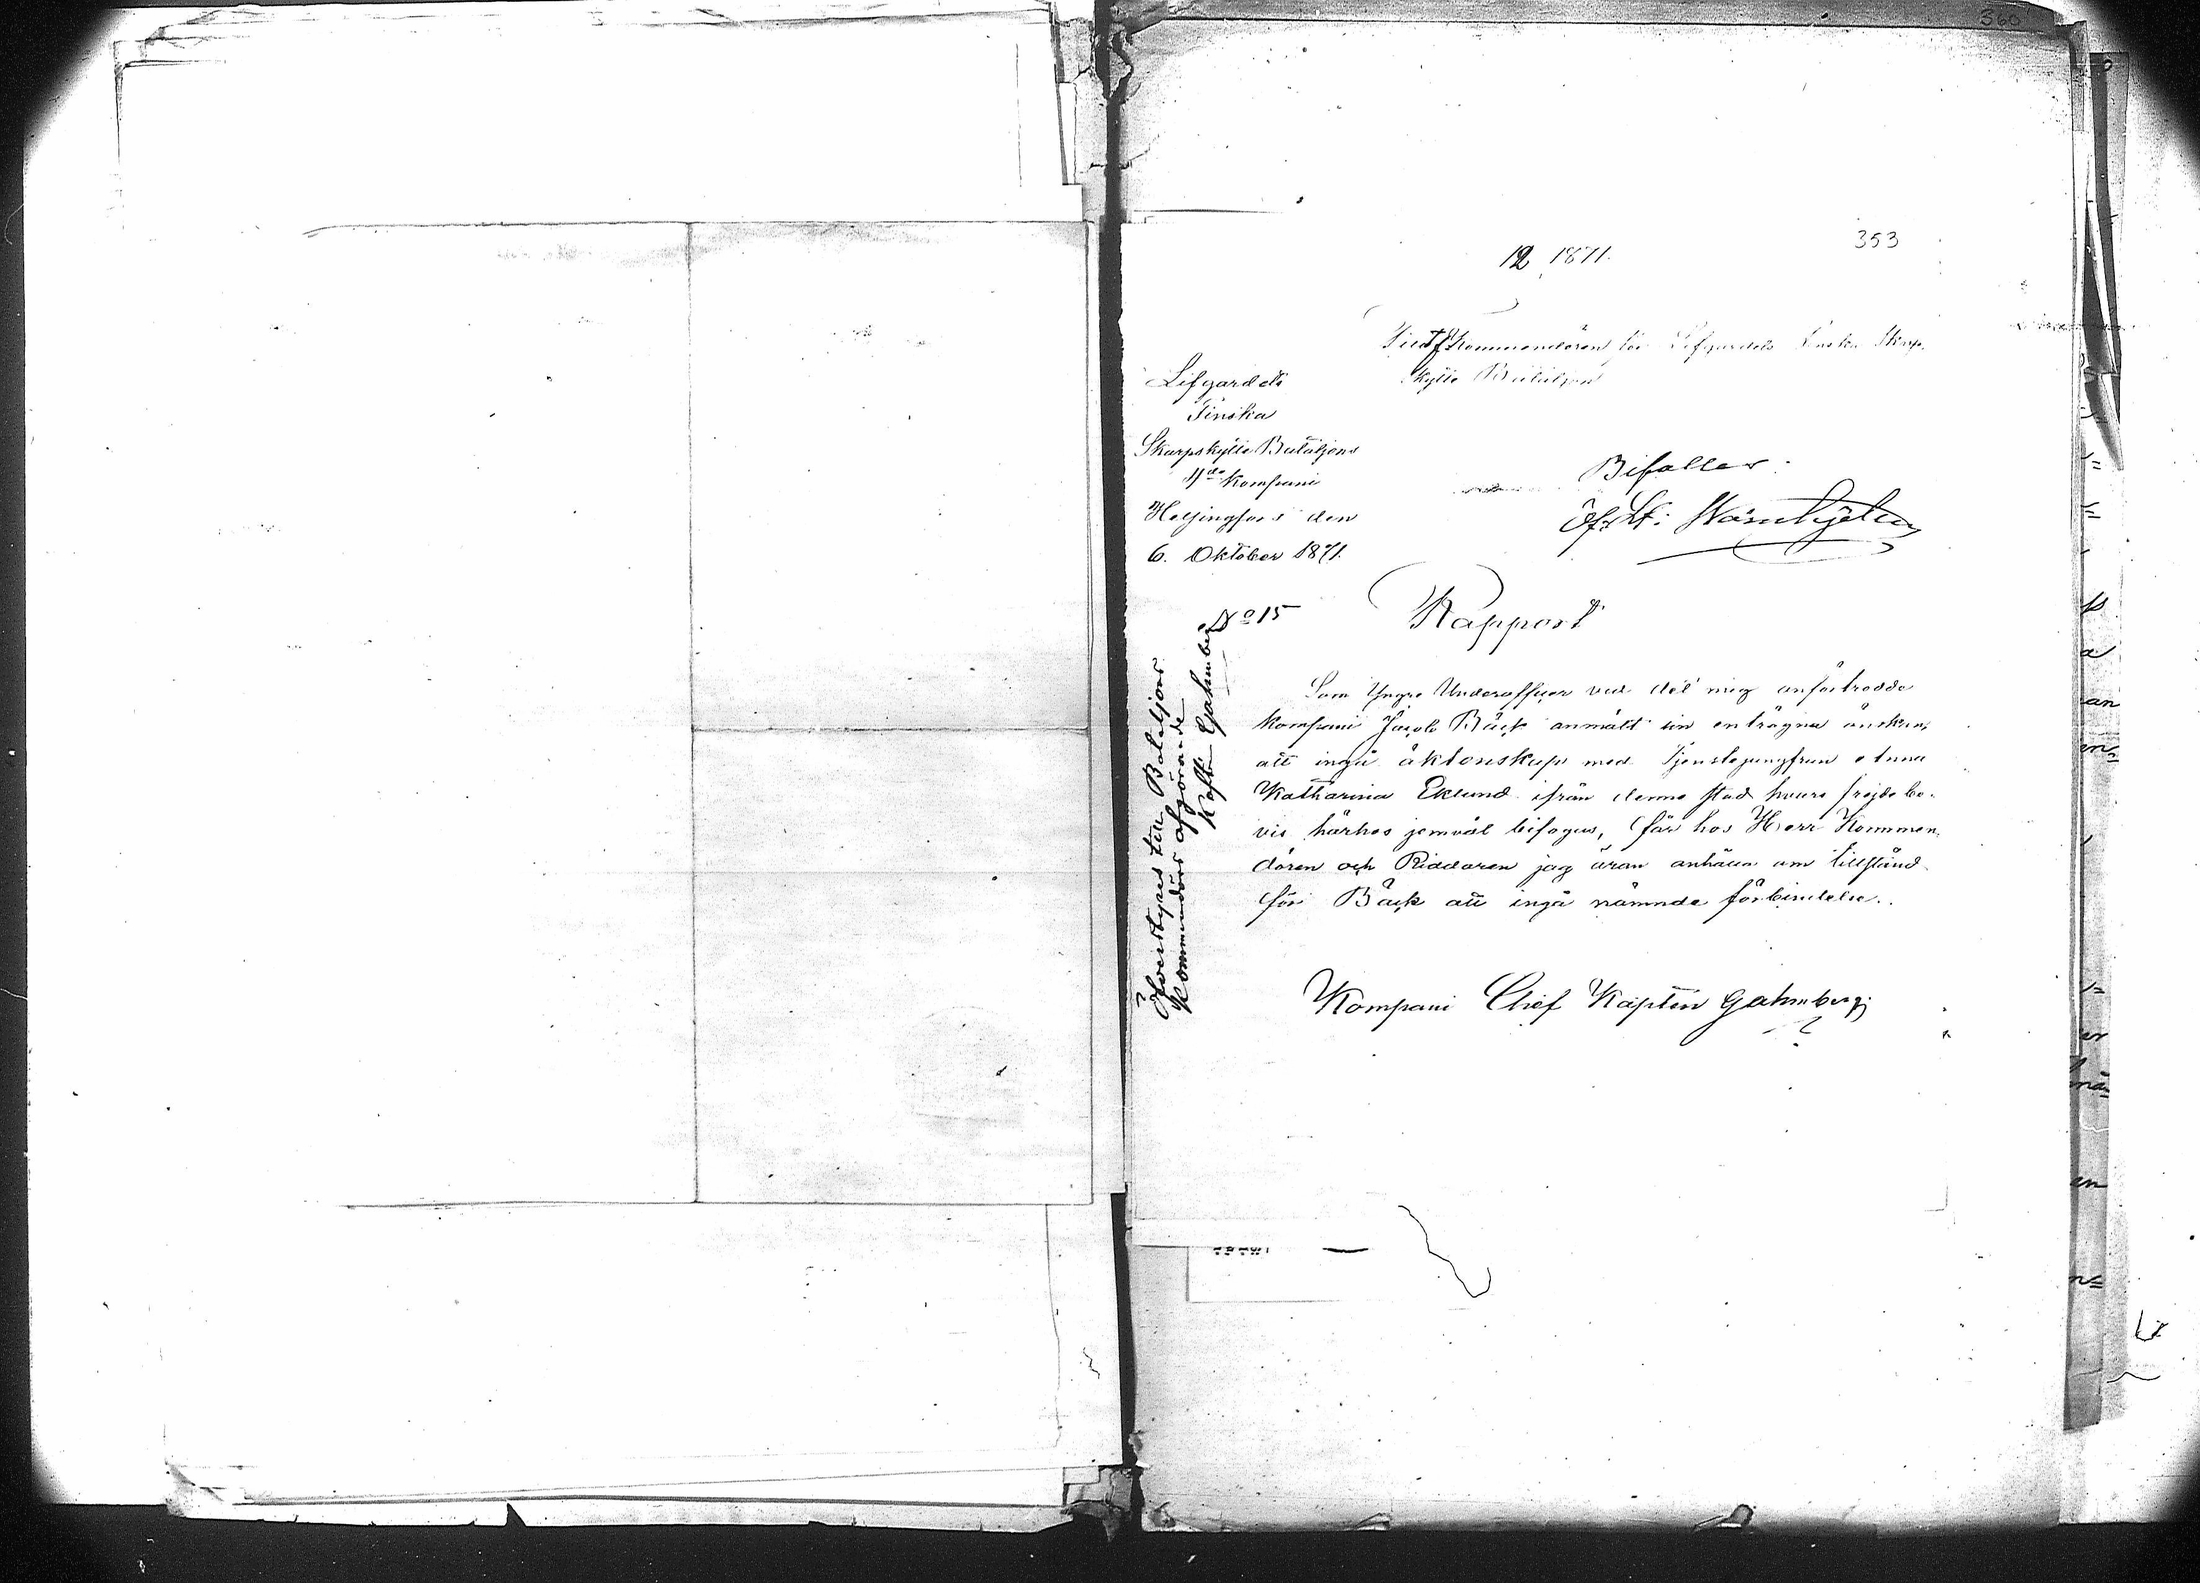 360
353
12 1871.
Kommendören för Lifgardets Finska Skarp-
skytte Bataljon
Lifgardets
Finska
Skarpskytte Bataljons
4de Kompani
Helsingfors den
6. Oktober 1871.
No 15
Bifalles.
Rapport
Som Yngre Underofficer vid det mig anförtrodda
Kompani Jacob Bäck anmält sin enträgna önskan,
att ingå äktenskap med Tjenstejungfrun Anna
Katharina Eklund ifrån denna stad hvars frejdebe-
vis härhos jemväl bifogas, får hos Herr Kommen-
dören och Riddaren jag äran anhålla om tillstånd
för Bäck att ingå nämnde förbindelse.
Kompani Chef Kapten Gahmberg
Öfverstyres till Bataljons
Kommendörs afgörande
Kapten Gahmberg